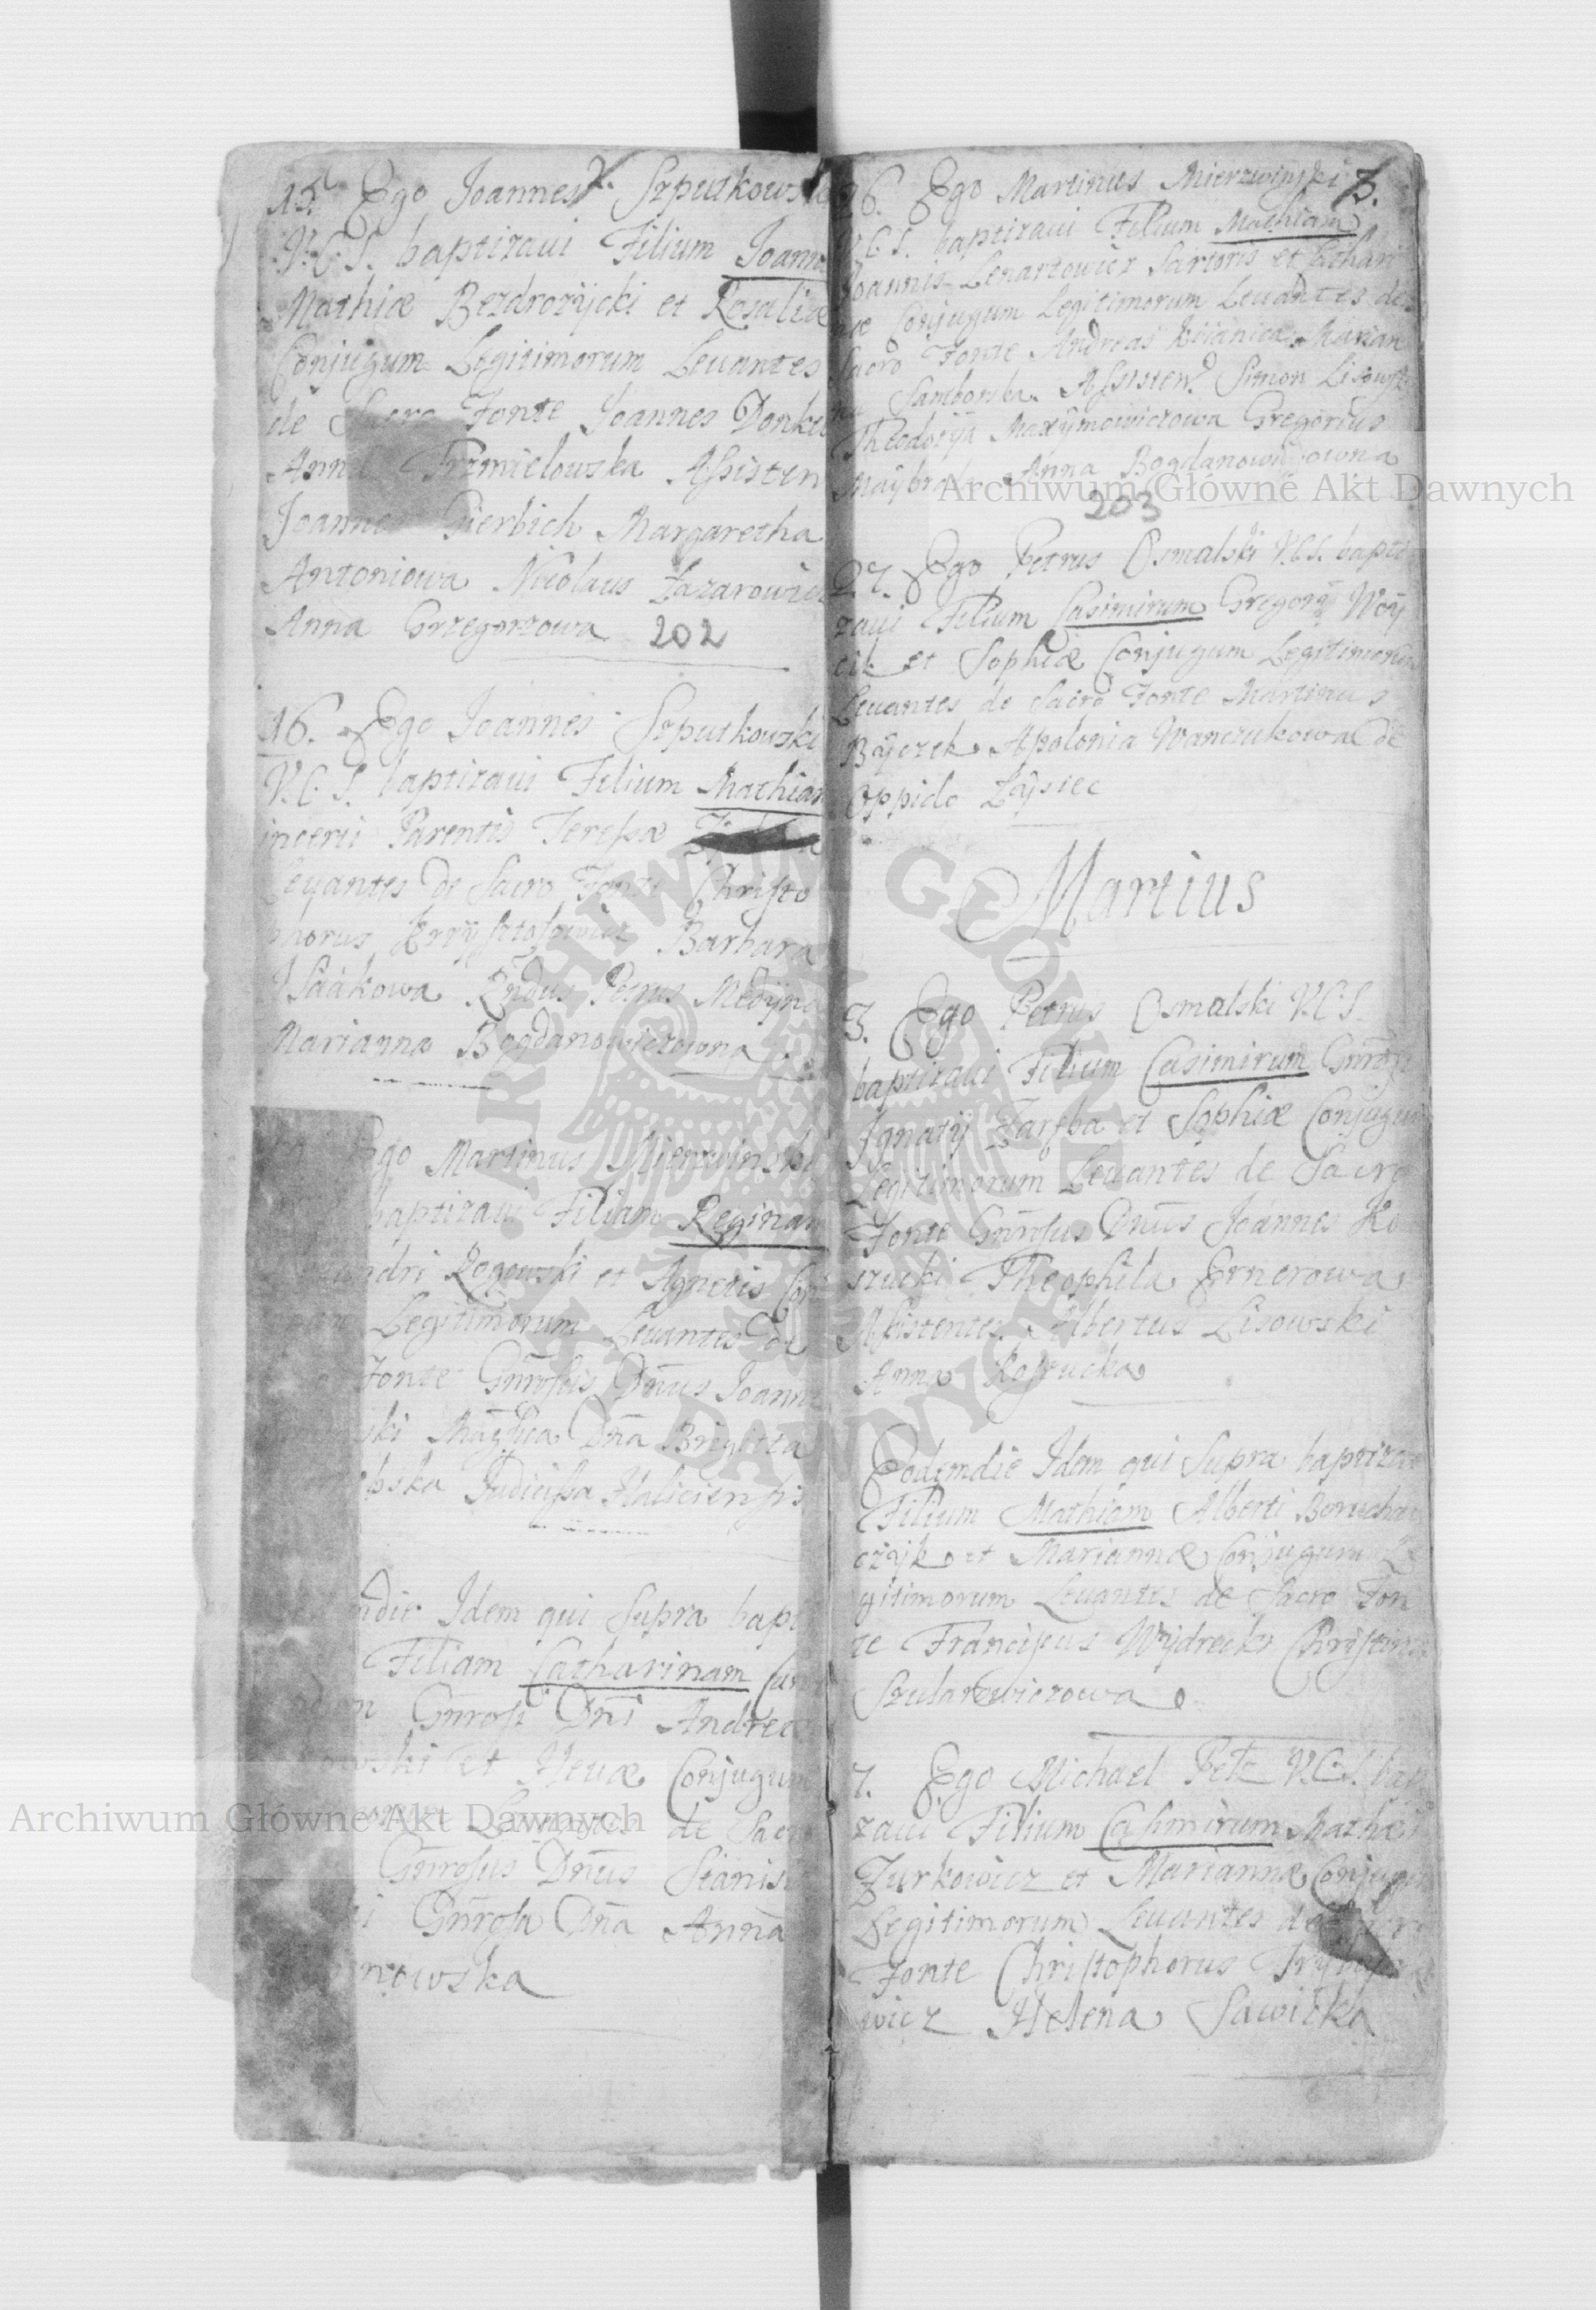 15. Ego Joannes Szputkowski
V.C.S. baptizaui Filium Joannem
Mathiæ Bezdrożycki et Rosaliæ
Conjugum Legitimorum Leuantes
de Sacro Fonte Joannes Donkie
Anna Trzmielowska Assisten
Joannes Gierbich Margaretha
Antoniowa Nicolaus Łazarowicz
Anna Grzegorzowa 202
16. Ego Joannes Szputkowski
V.C.S. baptizaui Filium Mathiam
incerti Parentis Teressæ
Leuantes de Sacro Fonte Christo
phorus Krzysztofowicz Barbara
Isaákowa Rndus Petrus Medyna
Marianna Bogdanowiczowna
Ego Martinus Mierzwinski
baptizaui Filiam Reginam
ndri Rogowski et Agnetis Con
Legitimorum Leuantes de
Fonte Gnrosus Dnus Joannes
ski Magfica Dna Brigitta
bska Judicissa Haliciensis
ndie Idem qui Supra bapt
Filiam Catharinam Cun
n Gnrosi Dni Andreæ
wski et Heuæ Conjugum
orum Leuantes de Sacro
Gnrosus Dnus Stanis
i Gnrosa Dna Anna
nowska
3.
26. Ego Martinus Mierzwinski
V.C.S. baptizaui Filium Mathiam
Joannis Lenartowicz Sartoris et Cathari
næ Conjugum Legitimorum Leuantes de
Sacro Fonte Andreas Marian
na Samborska Assisten Simon Lisowski
Theodozya Maxymowiczowa Gregorius
Anna Bogdanowiczowna
203
27. Ego Petrus Osmalski V.C.S. bapti
zaui Filium Casimirum Gregorÿ Woy
cik et Sophiæ Conjugum Legitimorum
Leuantes de Sacro Fonte Martinus
Bayczek Apolonia Wanczukowa de
Oppido Łysiec
Martius
3. Ego Petrus Osmalski V.C.S.
baptizaui Filium Casimirum Gnrosi
Ignatÿ Zaręba et Sophiæ Conjugum
Legitimorum Leuantes de Sacro
Fonte Gnrosus Dnus Joannes Ko
szucki Theophila Ernerowa
Assistentes Albertus Lisowski
Anna Koszucka
Eodemdie Idem qui Supra baptizaui
Filium Mathiam Alberti Boruchan
czyk et Mariannæ Conjugum Le
gitimorum Leuantes de Sacro Fon
te Franciscus Wydrecki Christina
Szularzewiczowa
7. Ego Michael Petz V.C.S. bapti
zaui Filium Casimirum Mathæi
Zurkowicz et Mariannæ Conjugum
Legitimorum Leuantes de Sacro
Fonte Christophorus
wicz Helena Sawicka
Archiwum Główne Akt Dawnych
Archiwum Główne Akt Dawnych
ARCHIWUM GŁÓWNE AKT DAWNYCH